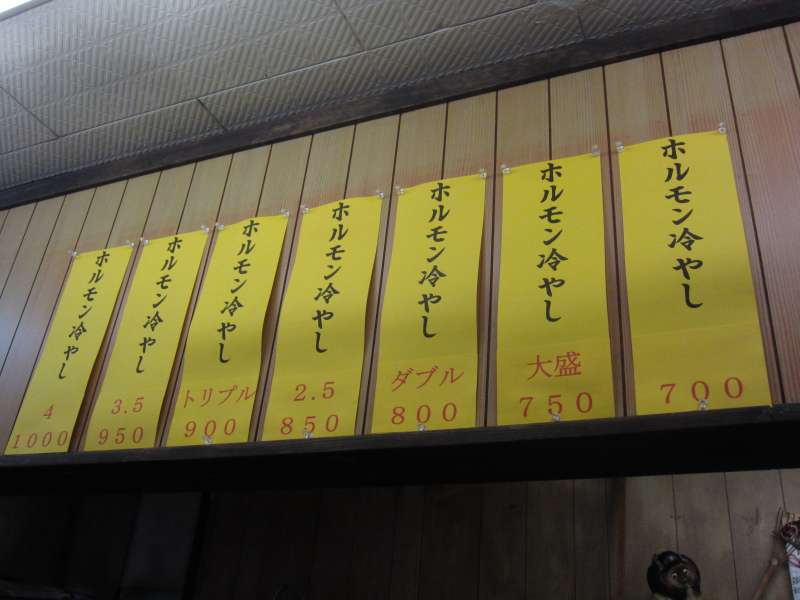 ホルモン冷やし
700
ホルモン冷やし
大盛
750
ホルモン冷やし
ダブル
800
ホルモン冷やし
2.5
850
ホルモン冷やし
トリプル
900
ホルモン冷やし
3.5
950
ホルモン冷やし
4
1000